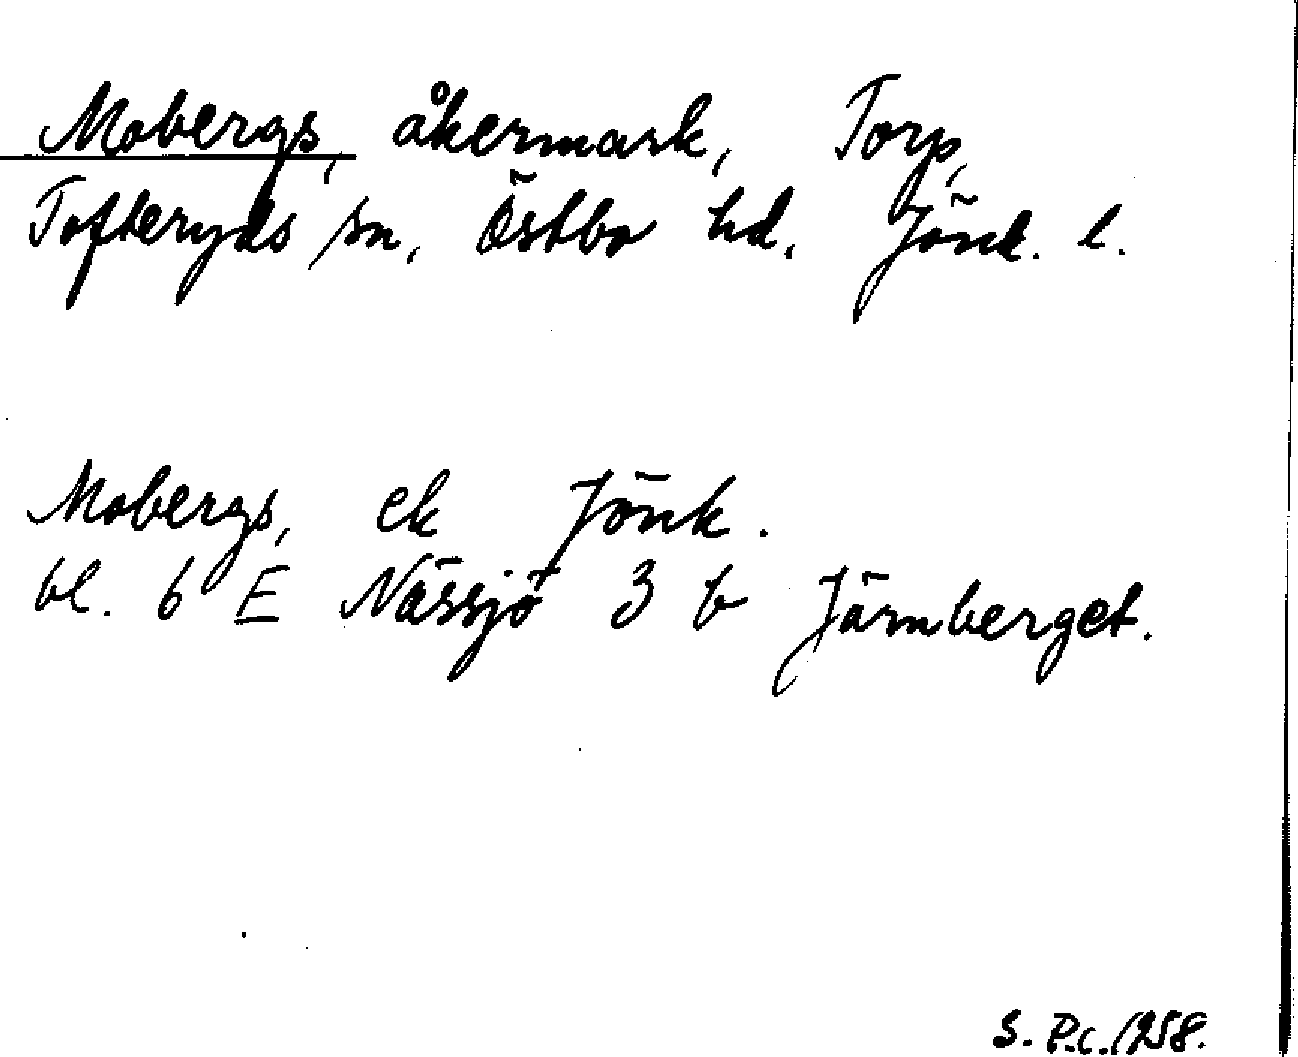 Mobergs, åkermark, Torp,
Tofteryds sn, Östbo hd. Jönk. l.
Mobergs, ek Jönk.
bl. 6 E Nässjö 3 b Järnberget.
S. P.c. 1258.